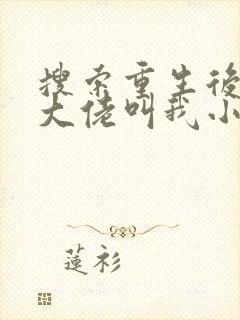 搜索重生後
大佬叫我小
蓮衫